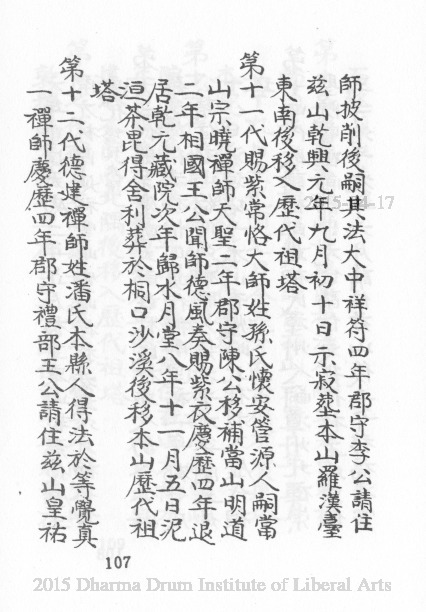 師披削後嗣其法大中祥符四年郡守李公請住
茲山乾興元年九月初十日示寂塟本山羅漢臺
東南後移入歷代祖塔
第十一代賜紫常恪大師姓孫氏懷安管源人嗣當
山宗曉禪師天聖二年郡守陳公移補當山明道
二年相國王公聞師德風奏賜紫衣慶歷四年退
居乾元藏院次年歸水月堂八年十一月五日泥
洹茶毘得舍利葬於桐口沙溪後移本山歷代祖
塔
第十二代德建禪師姓潘氏本縣人得法於等覺真
一禪師慶歷四年郡守禮部王公請住茲山皇祐
107
2015 Dharma Drum Institute of Liberal Arts